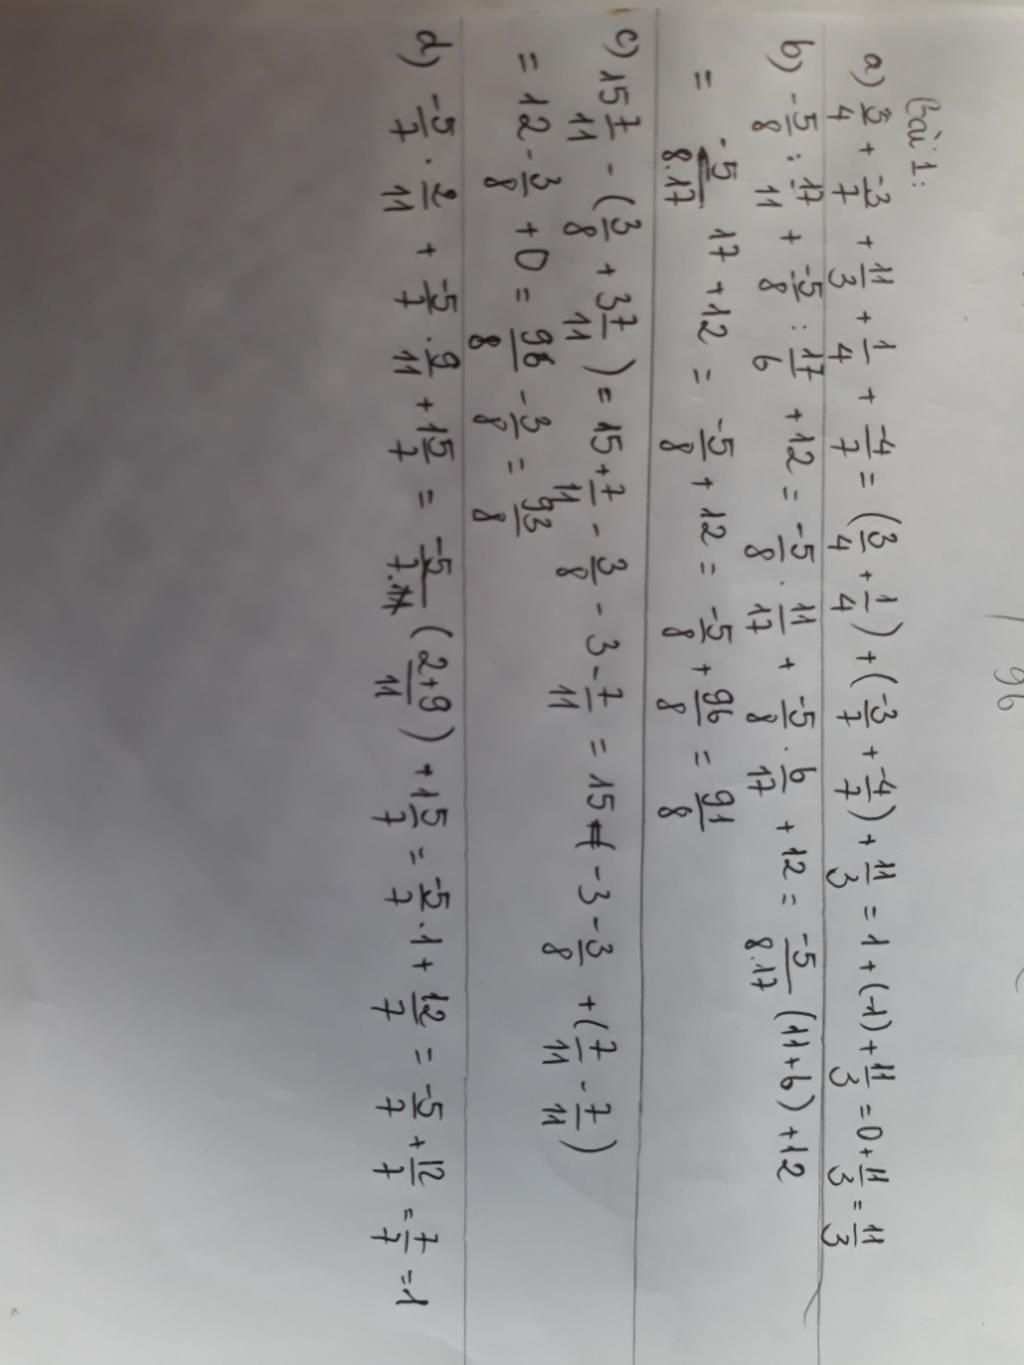 96
Bài 1:
a) 3/4 + -3/7 + 11/3 + 1/4 + -4/7 = (3/4 + 1/4) + (-3/7 + -4/7) + 11/3 = 1 + (-1) + 11/3 = 0 + 11/3 = 11/3
b) -5/8 : 17/11 + -5/8 : 17/6 + 12 = -5/8 . 11/17 + -5/8 . 6/17 + 12 = -5/8.17 (11+6) + 12
= -5/8.17 17 + 12 = -5/8 + 12 = -5/8 + 96/8 = 91/8
c) 15 7/11 - (3/8 + 3 7/11) = 15 + 7/11 - 3/8 - 3 - 7/11 = 15 - 3 - 3/8 + (7/11 - 7/11)
= 12 - 3/8 + 0 = 96/8 - 3/8 = 93/8
d) -5/7 . 2/11 + -5/7 . 9/11 + 1 5/7 = -5/7 (2+9/11) + 1 5/7 = -5/7 . 1 + 12/7 = -5/7 + 12/7 = 7/7 = 1